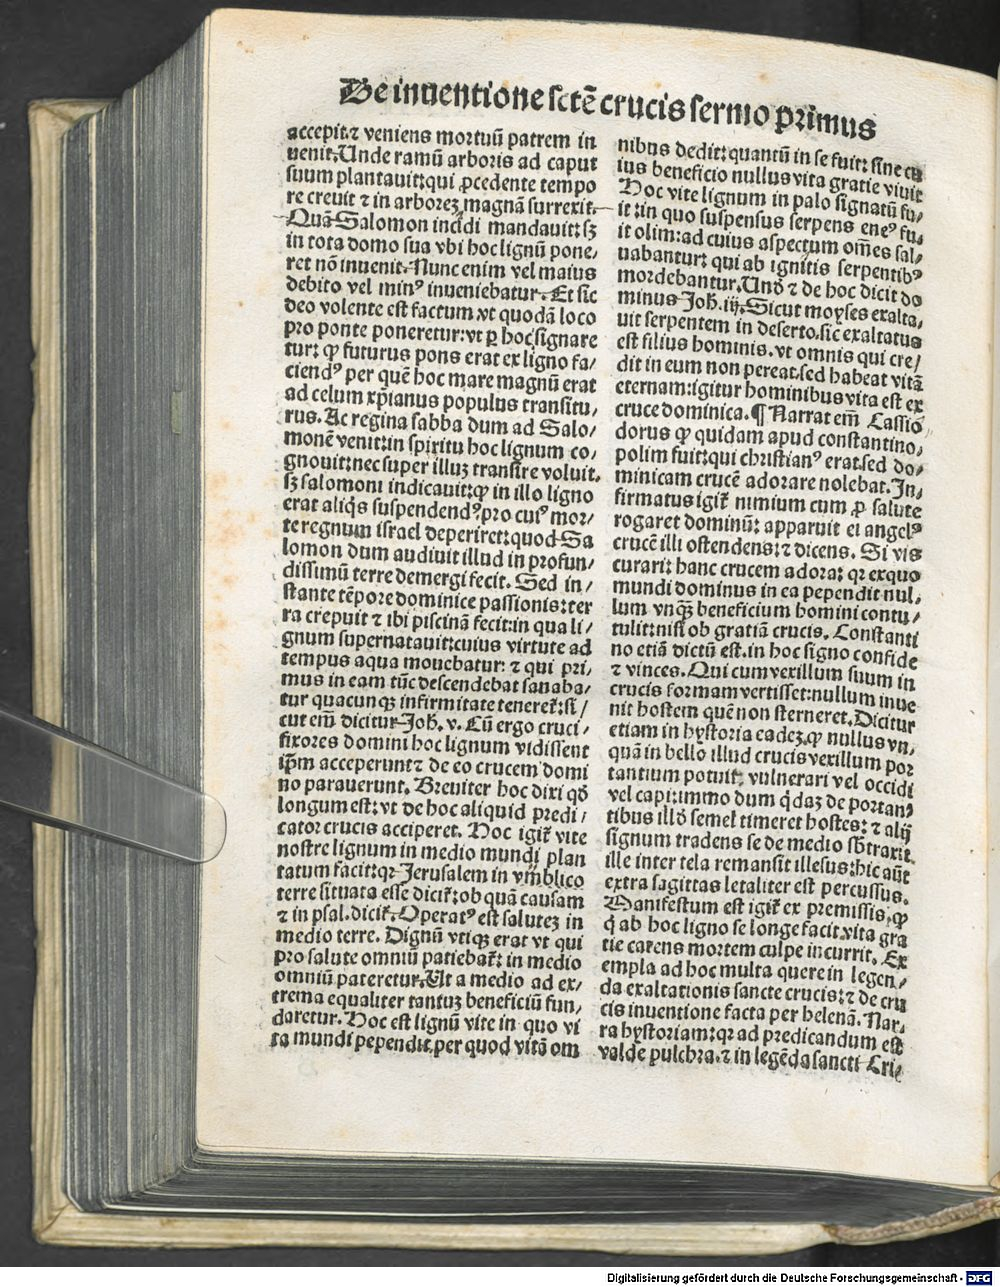 De inuentione sctē crucis sermo primus
accepit.⁊ veniens mortuū patrem in
uenit.Unde ramū arboris ad caput
suum plantauit:qui ꝓcedente tempo
re creuit ⁊ in arboreꝫ magnā surrexit.
Quā Salomon incidi mandauit:sꝫ
in tota domo sua vbi hoc lignū pone/
ret nō inuenit.Nunc enim vel maius
debito vel minꝰ inueniebatur.Et sic
deo volente est factum vt quodā loco
pro ponte poneretur:vt ꝑ hoc signare
tur: ꝙ futurus pons erat ex ligno fa/
ciendꝰ per quē hoc mare magnū erat
ad celum xp̄ianus populus transitu/
rus. Ac regina sabba dum ad Salo/
monē venit:in spiritu hoc lignum co/
gnouit:nec super illuꝫ transire voluit.
sꝫ salomoni indicauit:ꝙ in illo ligno
erat aliq̇s suspendendꝰ pro cuiꝰ mor/
te regnum israel deperiret:quod Sa
lomon dum audiuit illud in profun/
dissimū terre demergi fecit. Sed in/
stante tēpore dominice passionis:ter
ra crepuit ⁊ ibi piscinā fecit:in qua li/
gnum supernatauit:cuius virtute ad
tempus aqua mouebatur: ⁊ qui pri/
mus in eam tūc descendebat sanaba/
tur quacunqꝫ infirmitate teneret᷑:si/
cut em̄ dicitur Joh. v. Cū ergo cruci/
fixores domini hoc lignum vidissent
ip̄m acceperunt ⁊ de eo crucem domi
no parauerunt. Breuiter hoc dixi qō
longum est: vt de hoc aliquid predi/
cator crucis acciperet. Hoc igit᷑ vite
nostre lignum in medio mundi plan
tatum facit:qꝛ Jerusalem in vmblico
terre situata esse dicit᷑:ob quā causam
⁊ in psal.dicit᷑.Operatꝰ est saluteꝫ in
medio terre. Dignū vtiqꝫ erat vt qui
pro salute omniū patiebat᷑: in medio
omniū pateretur.Ut a medio ad ex/
trema equaliter tantuꝫ beneficiū fun/
daretur. Hoc est lignū vite in quo vi
ta mundi pependit.per quod vitā om
nibus dedit:quantū in se fuit: sine cu
ius beneficio nullus vita gratie viuit
Hoc vite lignum in palo signatū fu/
it:in quo suspensus serpens eneꝰ fu/
it olim:ad cuius aspectum om̄es sal/
uabantur: qui ab ignitis serpentibꝰ
mordebantur.Unō ⁊ de hoc dicit do
minus Joh. iij. Sicut moyses exalta/
uit serpentem in deserto.sic exaltatus
est filius hominis. vt omnis qui cre/
dit in eum non pereat.sed habeat vitā
eternam:igitur hominibus vita est ex
cruce dominica. ¶ Narrat em̄ Cassio
dorus ꝙ quidam apud constantino/
polim fuit:qui christianꝰ erat.sed do/
minicam crucē adorare nolebat. In/
firmatus igit᷑ nimium cum ꝓ salute
rogaret dominū: apparuit ei angelꝰ
crucē illi ostendens: ⁊ dicens. Si vis
curari: hanc crucem adora: qꝛ exquo
mundi dominus in ea pependit nul/
lum vnqꝫ beneficium homini contu/
tulit:nisi ob gratiā crucis. Constanti
no etiā dictū est. in hoc signo confide
⁊ vinces. Qui cum vexillum suum in
crucis formam vertisset:nullum inue
nit hostem quē non sterneret. Dicitur
etiam in hystoria eadeꝫ.ꝙ nullus vn/
quā in bello illud crucis vexillum por
tantium potuit vulnerari vel occidi
vel capi:immo dum q̇daꝫ de portan/
tibus illō semel timeret hostes: ⁊ alij
signum tradens se de medio sb̄traxit.
ille inter tela remansit illesus:hic aūt
extra sagittas letaliter est percussus.
Manifestum est igit᷑ ex premissis.ꝙ
q̇ ab hoc ligno se longe facit.vita gra
tie carens mortem culpe incurrit. Ex
empla ad hoc multa quere in legen/
da exaltationis sancte crucis: ⁊ de cru
cis inuentione facta per helenā. Nar/
ra hystoriam:qꝛ ad predicandum est
valde pulchra.⁊ in legēda sancti Cri/
Digitalisierung gefördert durch die Deutsche Forschungsgemeinschaft - DFG